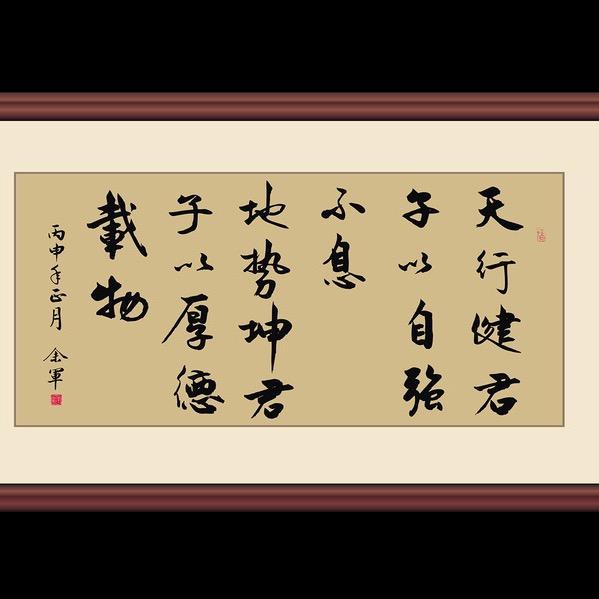 天行健君
子以自強
不息
地势坤君
子以厚德
載物
丙申年正月 余軍